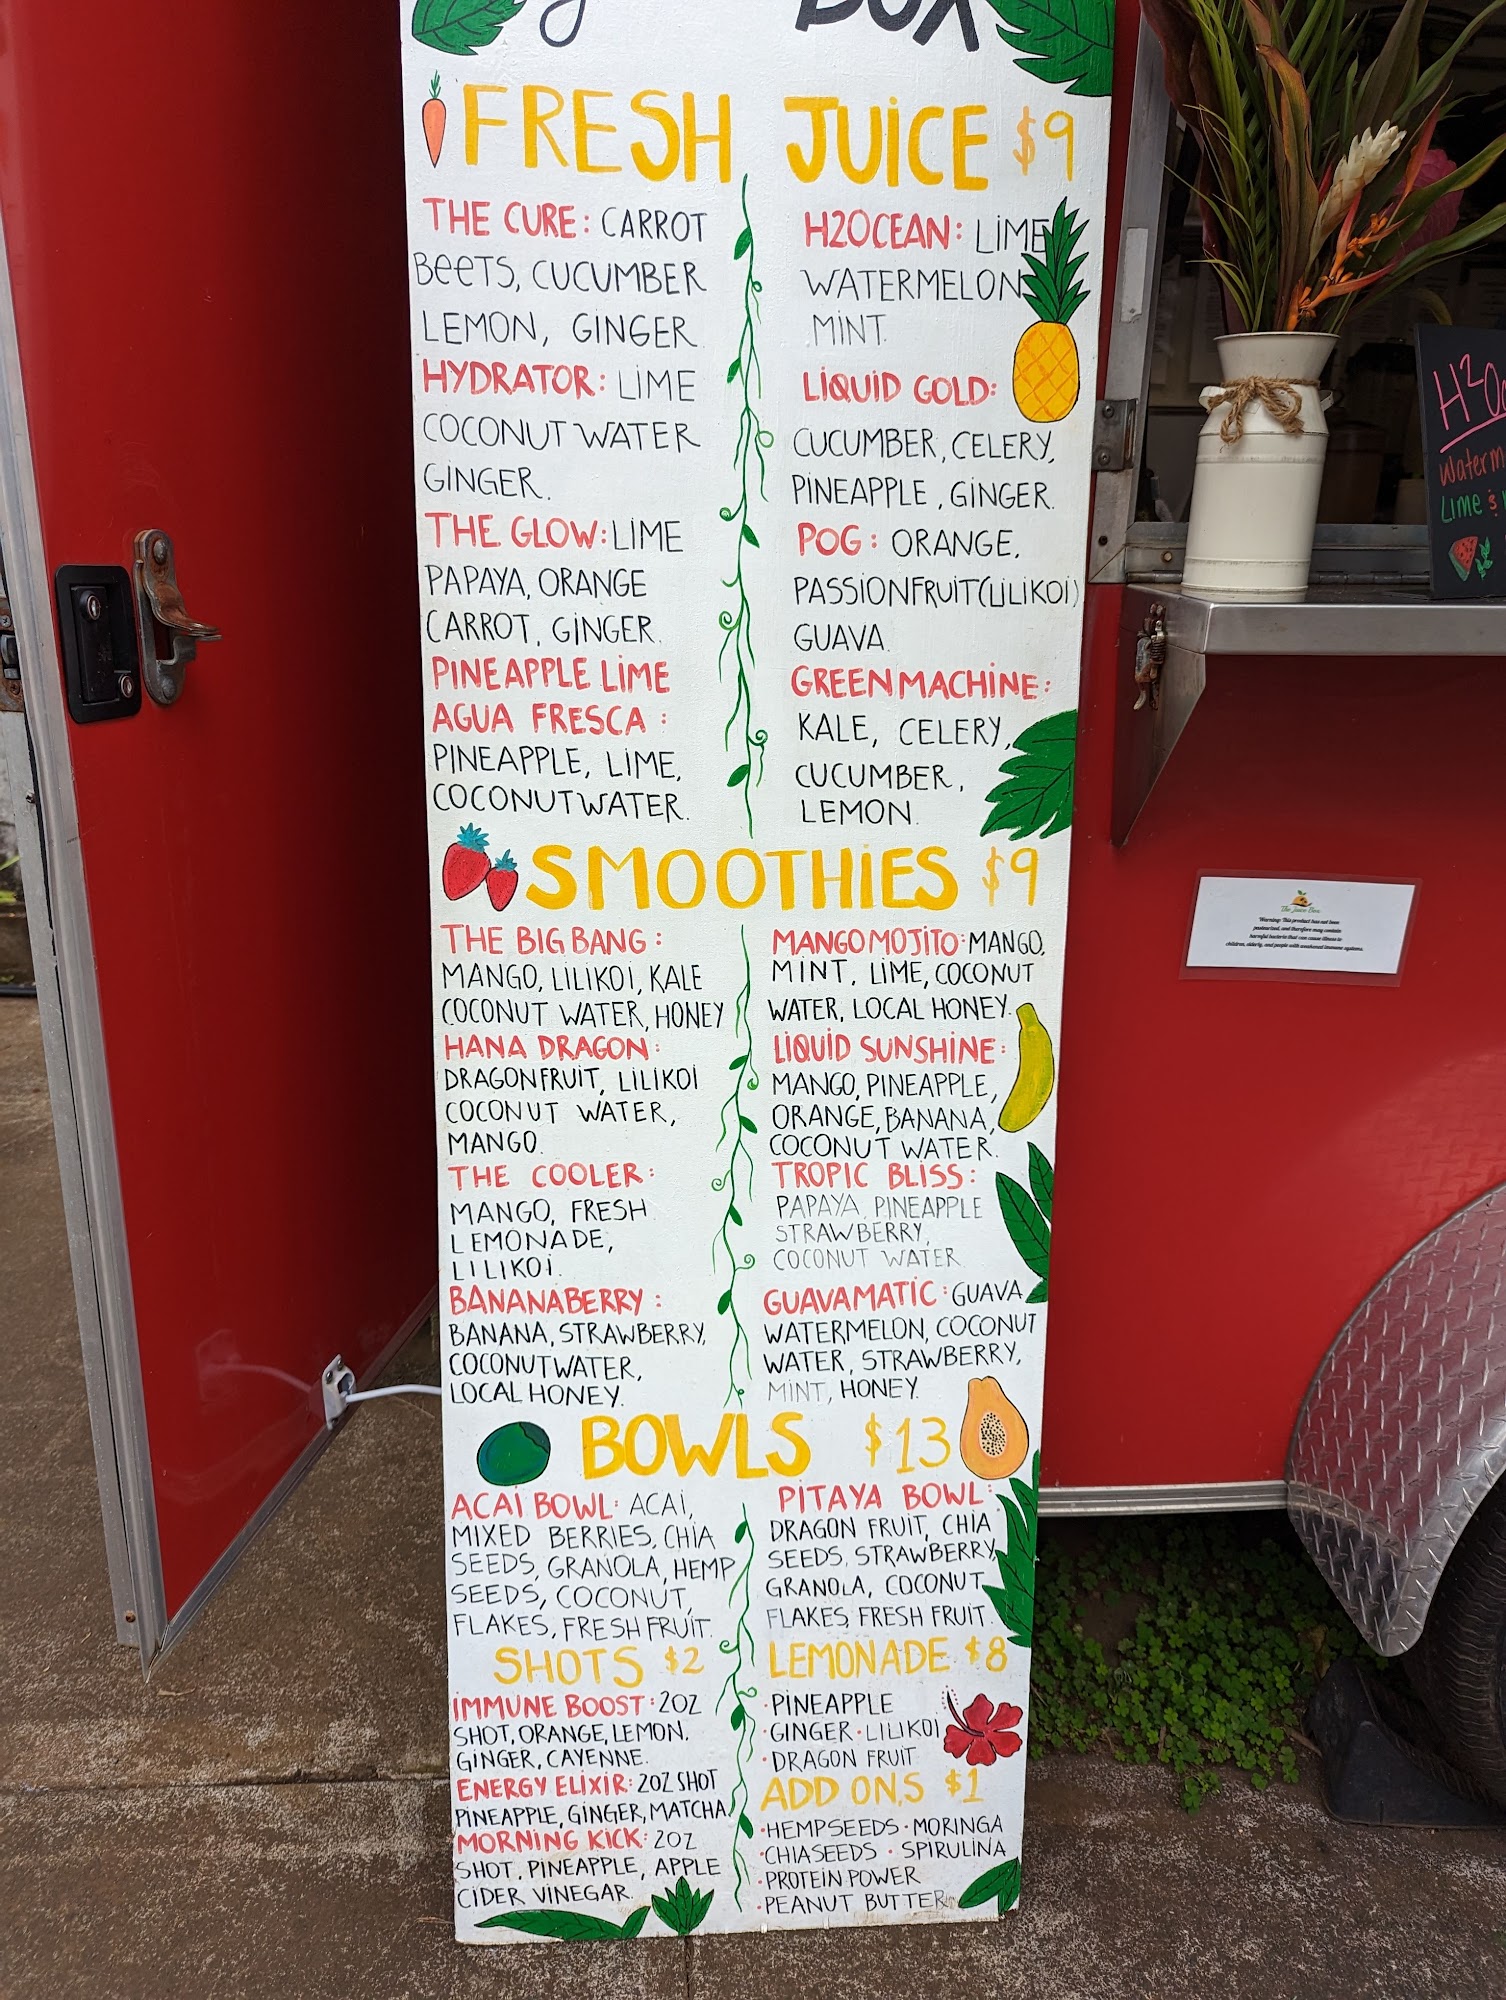 BOX
FRESH JUICE $9
THE CURE: CARROT
BEETS, CUCUMBER
LEMON, GINGER
HYDRATOR: LIME
COCONUT WATER
GINGER.
THE GLOW: LIME
PAPAYA, ORANGE
CARROT, GINGER.
PINEAPPLE LIME
AGUA FRESCA :
PINEAPPLE, LIME,
COCONUT WATER.
H2OCEAN: LIME
WATERMELON
MINT
LIQUID GOLD:
CUCUMBER, CELERY,
PINEAPPLE, GINGER.
POG: ORANGE,
PASSIONFRUIT(LILIKOI)
GUAVA
GREEN MACHINE:
KALE, CELERY,
CUCUMBER,
LEMON.
SMOOTHIES $9
THE BIG BANG:
MANGO, LILIKOI, KALE
COCONUT WATER, HONEY
HANA DRAGON:
DRAGONFRUIT, LILIKOI
COCONUT WATER,
MANGO.
THE COOLER:
MANGO, FRESH
LEMONADE,
LILIKOI.
BANANABERRY:
BANANA, STRAWBERRY,
COCONUT WATER,
LOCAL HONEY.
MANGO MOJITO: MANGO,
MINT, LIME, COCONUT
WATER, LOCAL HONEY.
LIQUID SUNSHINE:
MANGO, PINEAPPLE,
ORANGE, BANANA,
COCONUT WATER.
TROPIC BLISS:
PAPAYA, PINEAPPLE
STRAWBERRY,
COCONUT WATER
GUAVAMATIC: GUAVA
WATERMELON, COCONUT
WATER, STRAWBERRY,
MINT, HONEY.
BOWLS $13
ACAI BOWL: ACAI,
MIXED BERRIES, CHIA
SEEDS, GRANOLA, HEMP
SEEDS, COCONUT,
FLAKES, FRESH FRUIT.
PITAYA BOWL:
DRAGON FRUIT, CHIA
SEEDS, STRAWBERRY,
GRANOLA, COCONUT
FLAKES, FRESH FRUIT.
SHOTS $2
IMMUNE BOOST: 2OZ
SHOT, ORANGE, LEMON.
GINGER, CAYENNE.
ENERGY ELIXIR: 2OZ SHOT
PINEAPPLE, GINGER, MATCHA
MORNING KICK: 2OZ
SHOT, PINEAPPLE, APPLE
CIDER VINEGAR.
LEMONADE $8
·PINEAPPLE
·GINGER·LILIKOI
·DRAGON FRUIT
ADD ONS $1
·HEMPSEEDS·MORINGA
·CHIASEEDS·SPIRULINA
·PROTEIN POWER
·PEANUT BUTTER
H2O
Waterm
Lime &
The Juice Box
Warning: This product has not been
pasteurized, and therefore may contain
harmful bacteria that can cause illness in
children, elderly, and people with weakened immune systems.